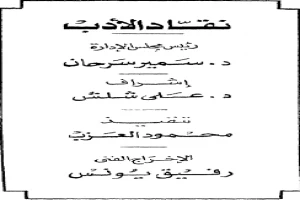 نقاد الأدب
رئيس مجلس الإدارة
د. سمير سرحان
إشراف
د. على شلش
تنفيذ
محمود العزب
الإخراج الفنى
رفيق يونس